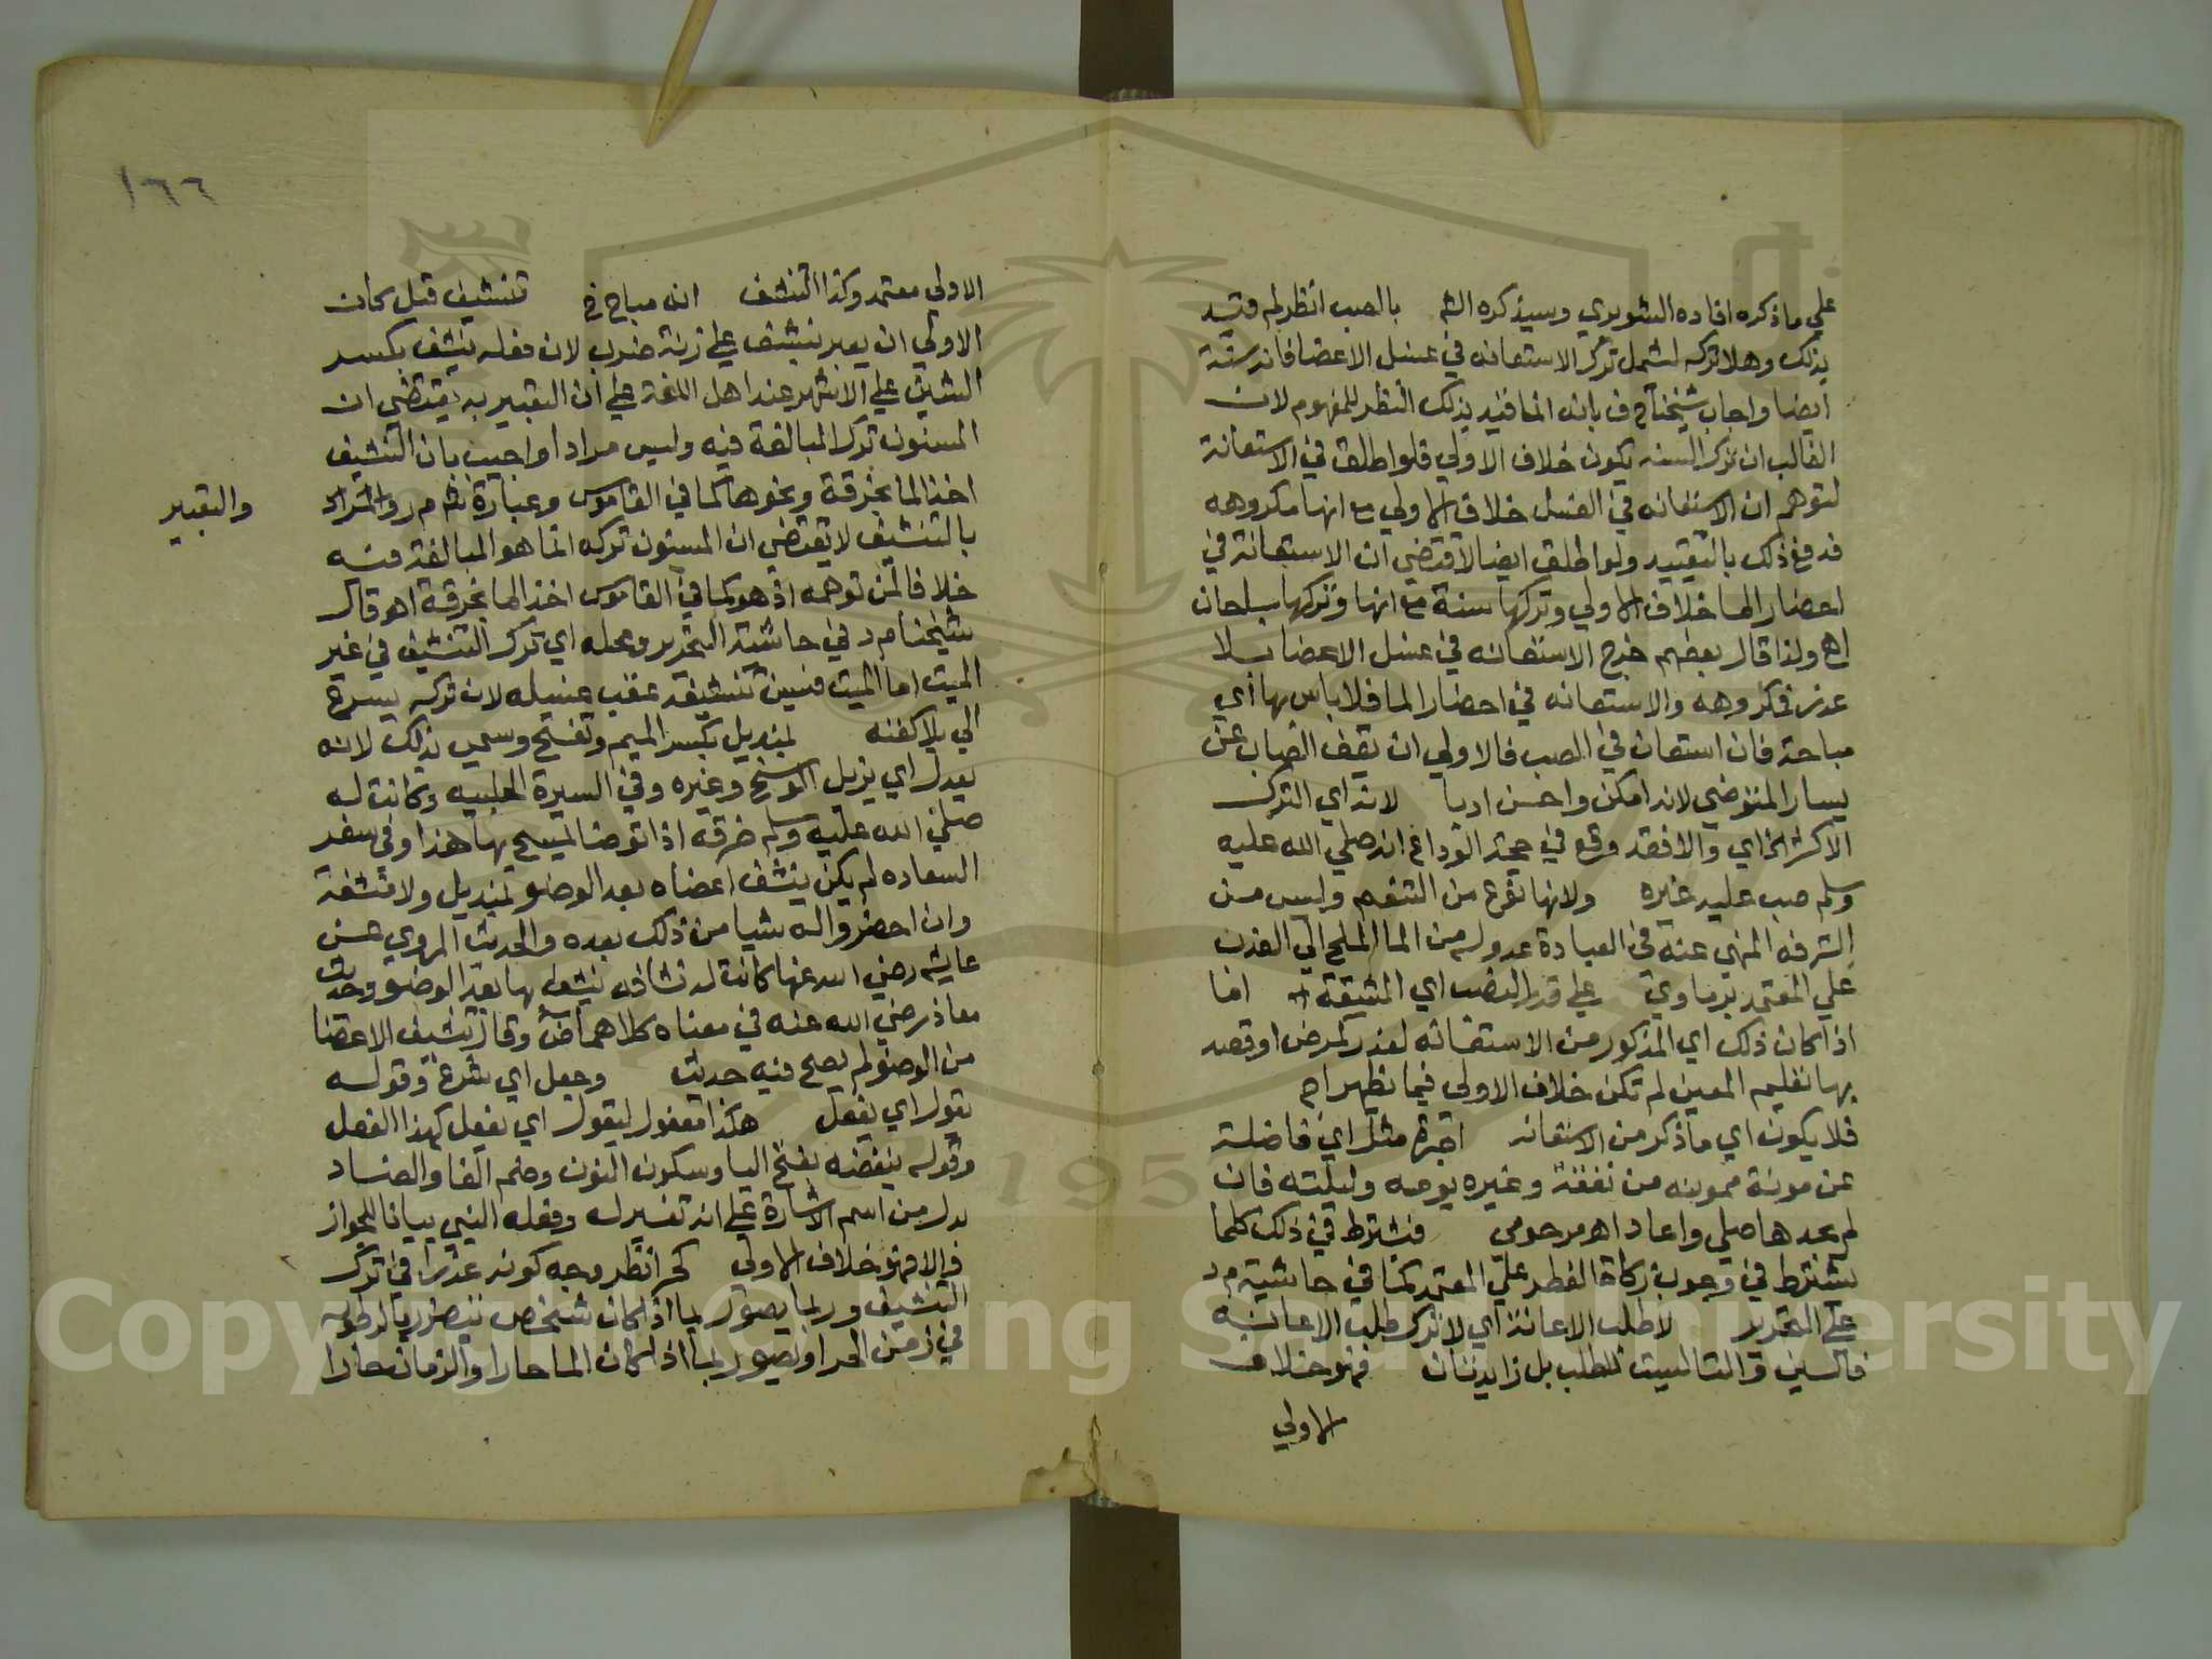 علي ما ذكره افاده الشوبري وسيذكره الشم بالصب انظر لم قيد
بذلك وهلا تركه لشمل ترك الاستعانه في غسل الاعضا فانه سنة
ايضا واجاب شيخنا ح ف بانه انما قيد بذلك النظر للمفهوم لان
الغالب ان ترك السنه يكون خلاف الاولي فلو اطلق في الاستعانة
لتوهم ان الاستعانه في الغسل خلاف الاولي مع انها مكروهه
فدفع ذلك بالتقييد ولو اطلق ايضا لاقتضي ان الاستعانة في
احضار الما خلاف الاولي وتركها سنة مع انها وتركها سباحان
اه ولذا قال بعضهم خرج الاستعانه في غسل الاعضا بلا
عذر فمكروهه والاستعانه في احضار الما فلا باس بها اي
مباحة فان استعان في الصب فالاولي ان يقف الصاب عن
يسار المتوضي لانه امكن واحسن ادبا لانه اي الترك
الاكثر الخ اي والا فقد وقع في حجة الوداع انه صلي الله عليه
وسلم صب عليه غيره ولانها نوع من التنعم وليس من
الترفه المنهي عنه في العبادة عدوله من الما المالح الي العذب
علي المعتمد برماوي علي قدر النصب اي المشقة اما
اذا كان ذلك اي المذكور من الاستعانه لعذر كمرض او قصد
بها تعليم المعين لم تكن خلاف الاولي فيما يظهر اه
فلا يكون اي ما ذكر من الاستعانه اجرة مثل اي فاضلة
عن مونة ممونه من نفقة وغيره يومه وليلته فان
لم يجدها صلي واعاد اه مرحومي فيشترط في ذلك كلما
يشترط في وجوب زكاة الفطر علي المعتمد كما في حاشية م د
علي التحرير لا طلب الاعانة اي لا ترك طلب الاعانة
فالسين والتا ليست للطلب بل زايدتان فهو خلاف
الاولي
١٦٦
الاولي معتمد وكذا التنشف انه مباح تنشيف قيل كان
الاولي ان يعبر بنشف علي زنة ضرب لان فعله ينشف بكسر
الشين علي الاشهر عند اهل اللغة علي ان التعبير به يقتضي ان
المسنون ترك المبالغة فيه وليس مرادا واجيب بان التنشيف
اخذ الما بخرقة ونحوها كما في القاموس وعبارة م ر والمراد
والتعبير
بالتنشيف لا يقتضي ان المسنون تركه انما هو المبالغة فيه
خلافا لمن توهمه اذ هو كما في القاموس اخذ الما بخرقة اه قال
شيخنا م د في حاشية التحرير ومحله اي ترك التنشيف في غير
الميت اما الميت فيسن تنشيفه عقب غسله لان تركه يسرع
الي بلا كفنه بمنديل بكسر الميم وتفتح وسمي بذلك لانه
يندل اي يزيل الوسخ وغيره وفي السيرة الحلبيه وكانت له
صلي الله عليه وسلم خرقة اذا توضا يمسح بها هذا وفي سفر
السعاده لم يكن ينشف اعضاه بعد الوضو بمنديل ولا منشفة
وان احضروا له شيا من ذلك بعده والحديث المروي عن
عايشه رضي الله عنها كانت له نشافه ينشف بها بعد الوضو وحديث
معاذ رضي الله عنه في معناه كلاهما ض وقال تنشيف الاعضا
من الوضو لم يصح فيه حديث وجعل اي شرع وقوله
يقول اي يفعل هكذا مفعول ليقول اي يفعل كهذا الفعل
وقوله ينفضه بفتح اليا وسكون النون وضم الفا والضاد
بدل من اسم الاشارة علي انه تفسير له وفعله النبي بيانا للجواز
والا فهو خلاف الاولي كحر انظر وجه كونه عذرا في ترك
التنشيف وربما يصور بما اذا كان شخص يتضرر بالرطوبه
في زمن الحر او تصور بما اذا كان الما حارا والزمان حارا